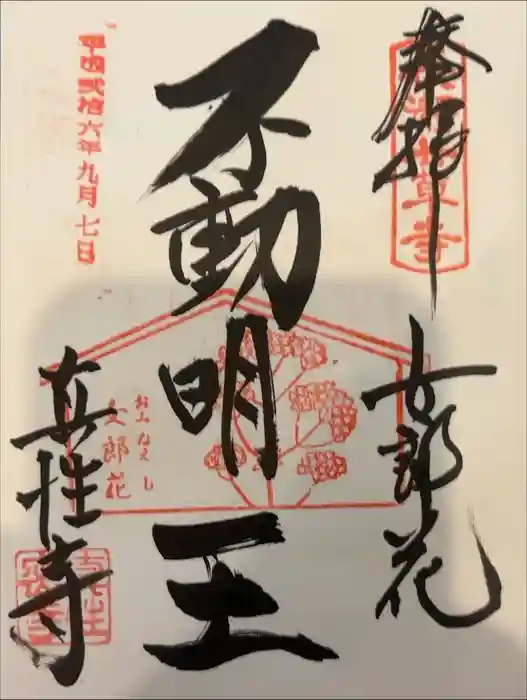 奉拝
七草寺
女郎花
不動明王
おみなえし
女郎花
平成弐拾六年九月七日
真性寺